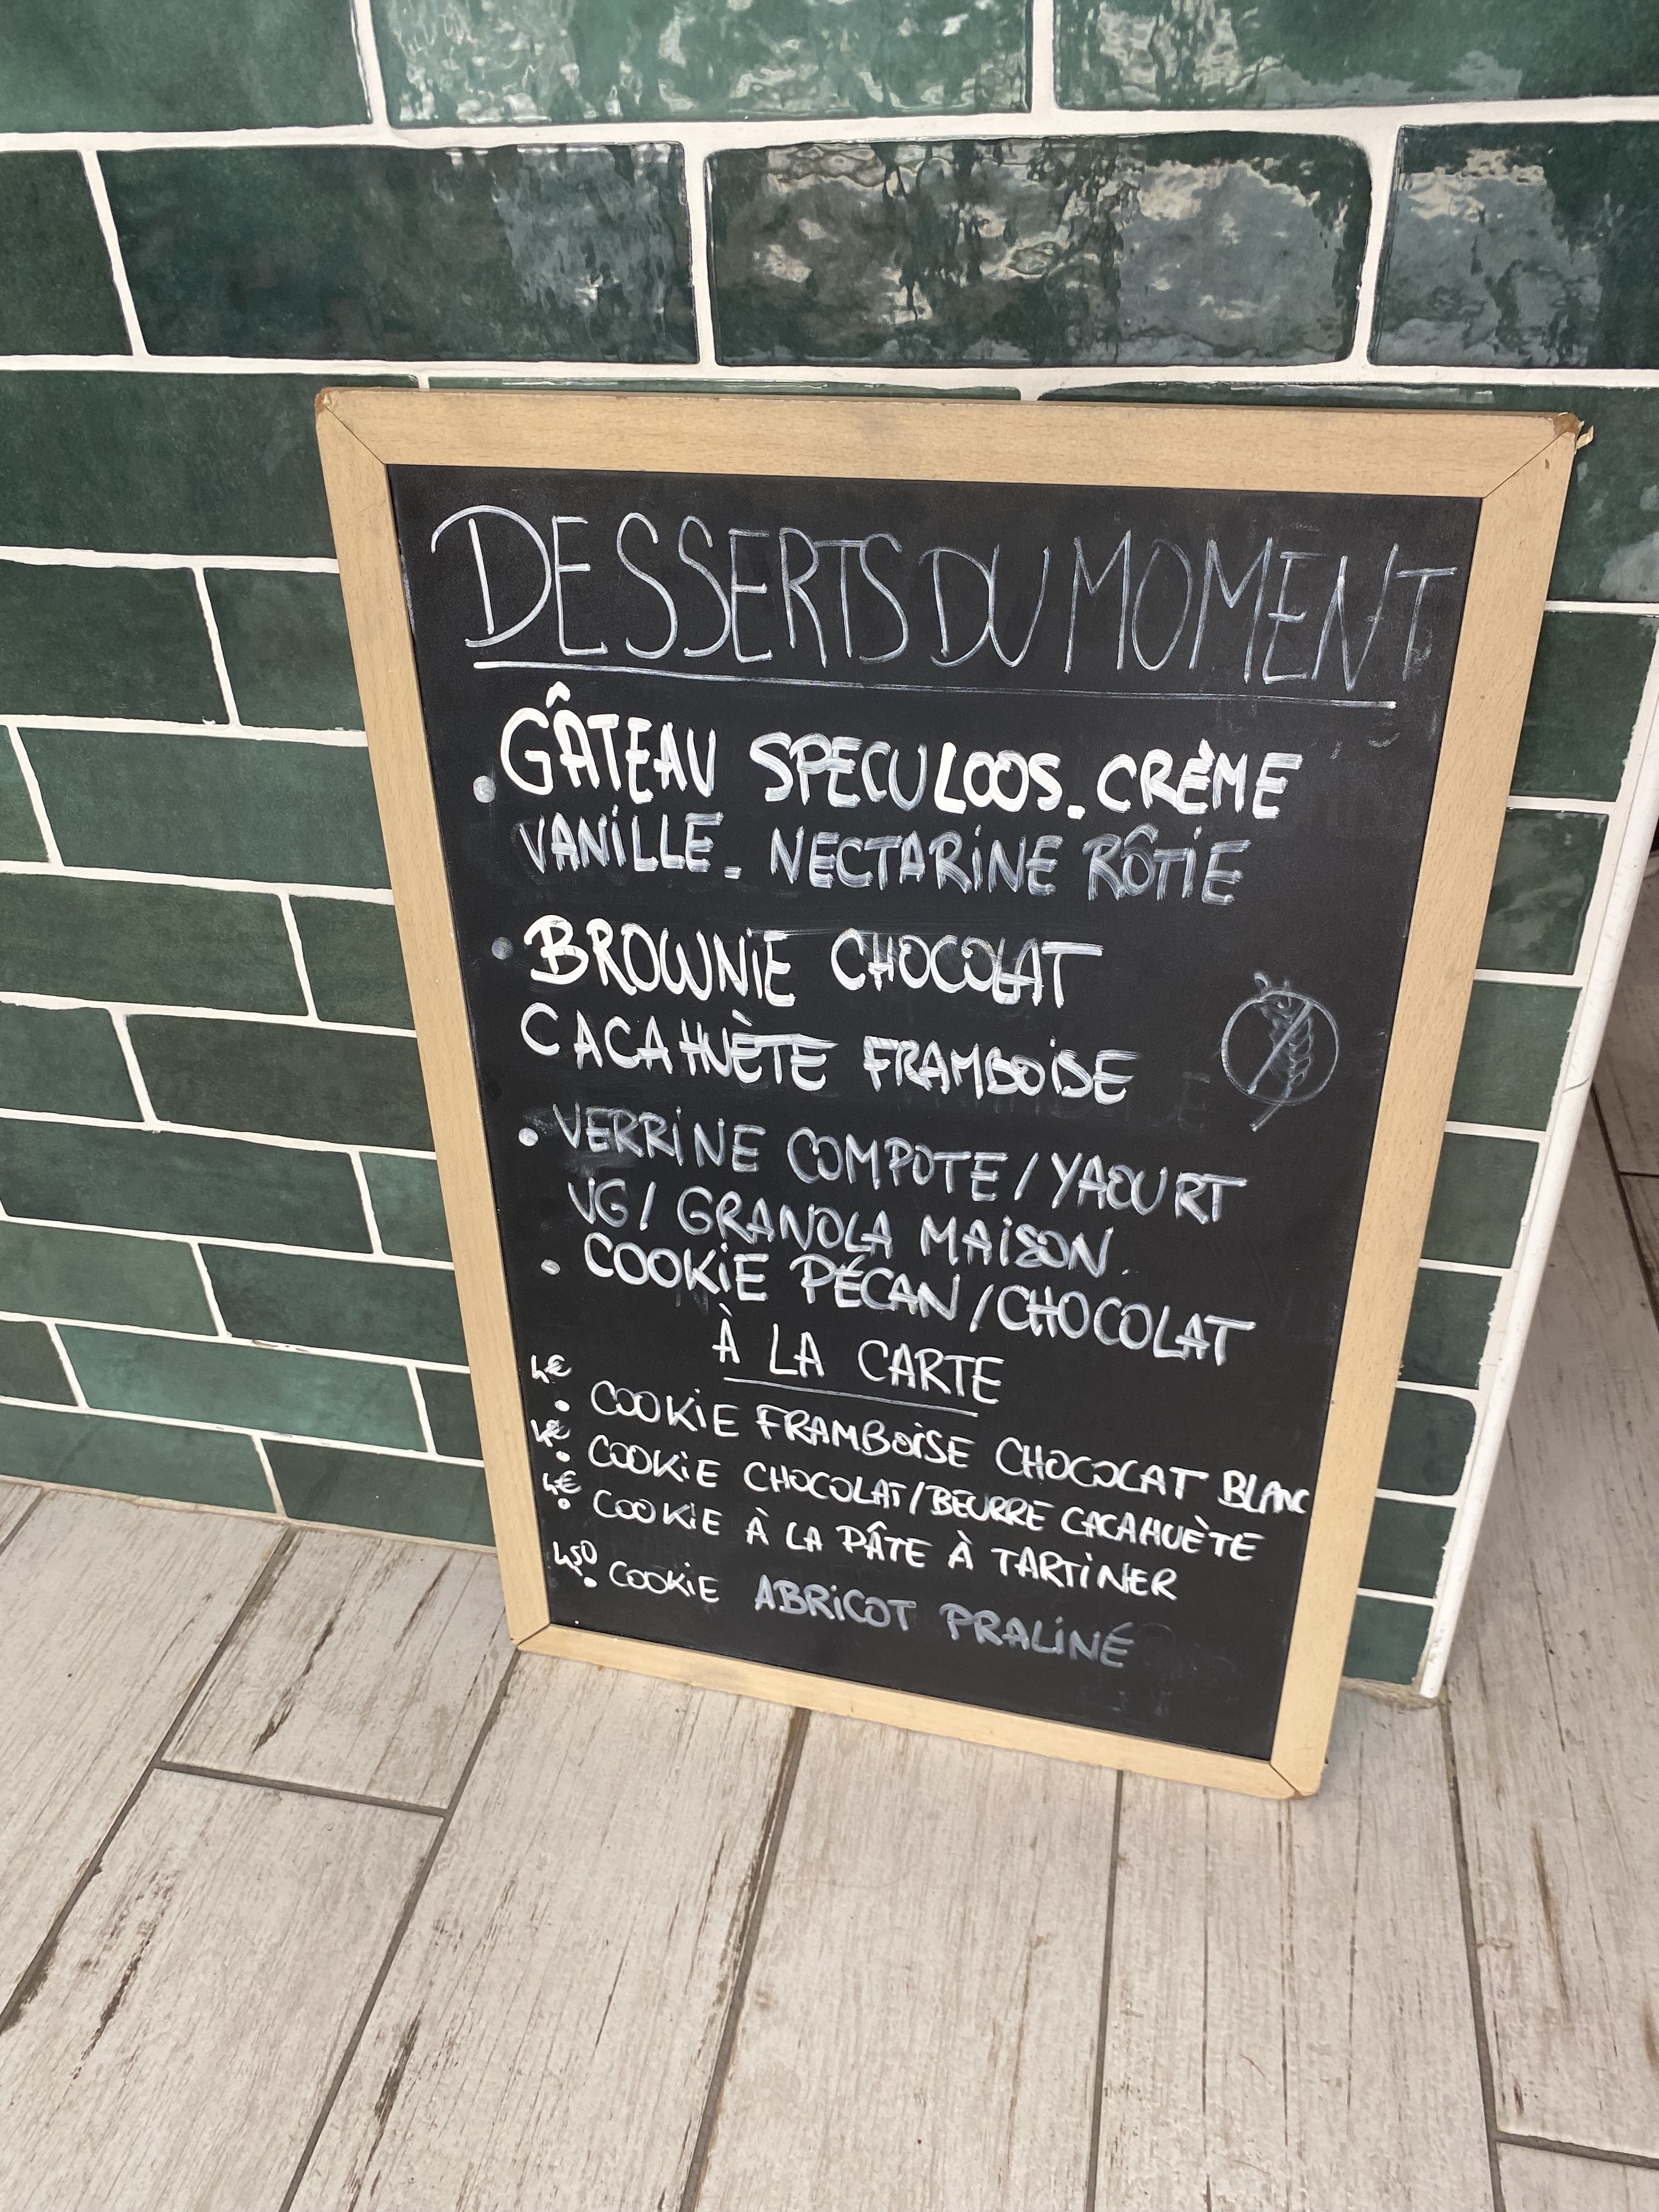 DESSERTS DU MOMENT
. GÂTEAU SPECULOOS. CRÈME
VANILLE. NECTARINE RÔTIE
. BROWNIE CHOCOLAT
CACAHUÈTE FRAMBOISE
. VERRINE COMPOTE / YAOURT
VG / GRANOLA MAISON
. COOKIE PÉCAN / CHOCOLAT
À LA CARTE
4€ . COOKIE FRAMBOISE CHOCOLAT BLANC
4€ . COOKIE CHOCOLAT / BEURRE CACAHUÈTE
4€ . COOKIE À LA PÂTE À TARTINER
4,50 . COOKIE ABRICOT PRALINÉ